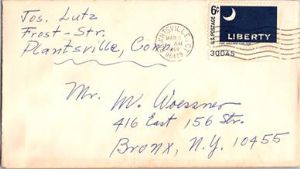 Jos. Lutz
Frost-Str.
Plantsville, Conn.
PLANTSVILLE, CT.
AM
06479
U.S. POSTAGE 6¢
LIBERTY
Mr. M. Woessner
416 East 156 Str.
Bronx, N.Y. 10455